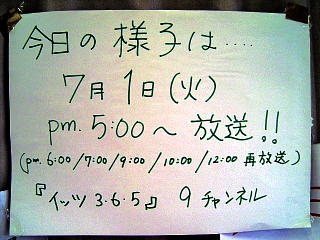 今日の様子は‥‥
7月1日(火)
pm. 5:00～ 放送!!
(pm. 6:00/7:00/9:00/10:00/12:00 再放送)
『イッツ3.6.5』 9チャンネル